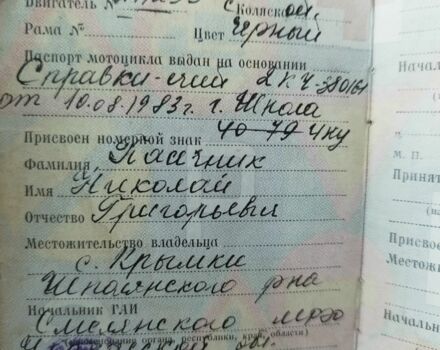 Двигатель № С Коляской.
Рама № Цвет Черный
Паспорт мотоцикла выдан на основании
Справки-счёт 2КЧ-380164
от 10.08.1983г. г. Шпола
Присвоен номерной знак 40-79 чну
Фамилия
Имя Николай
Отчество Григорьевич
Местожительство владельца
с. Крымки
Шполянского р-на
Начальник ГАИ
Смелянского
(наименование органа, республики, края, области)
Начальн
М. П.
Принят
Присвое
Местожи
Начальн